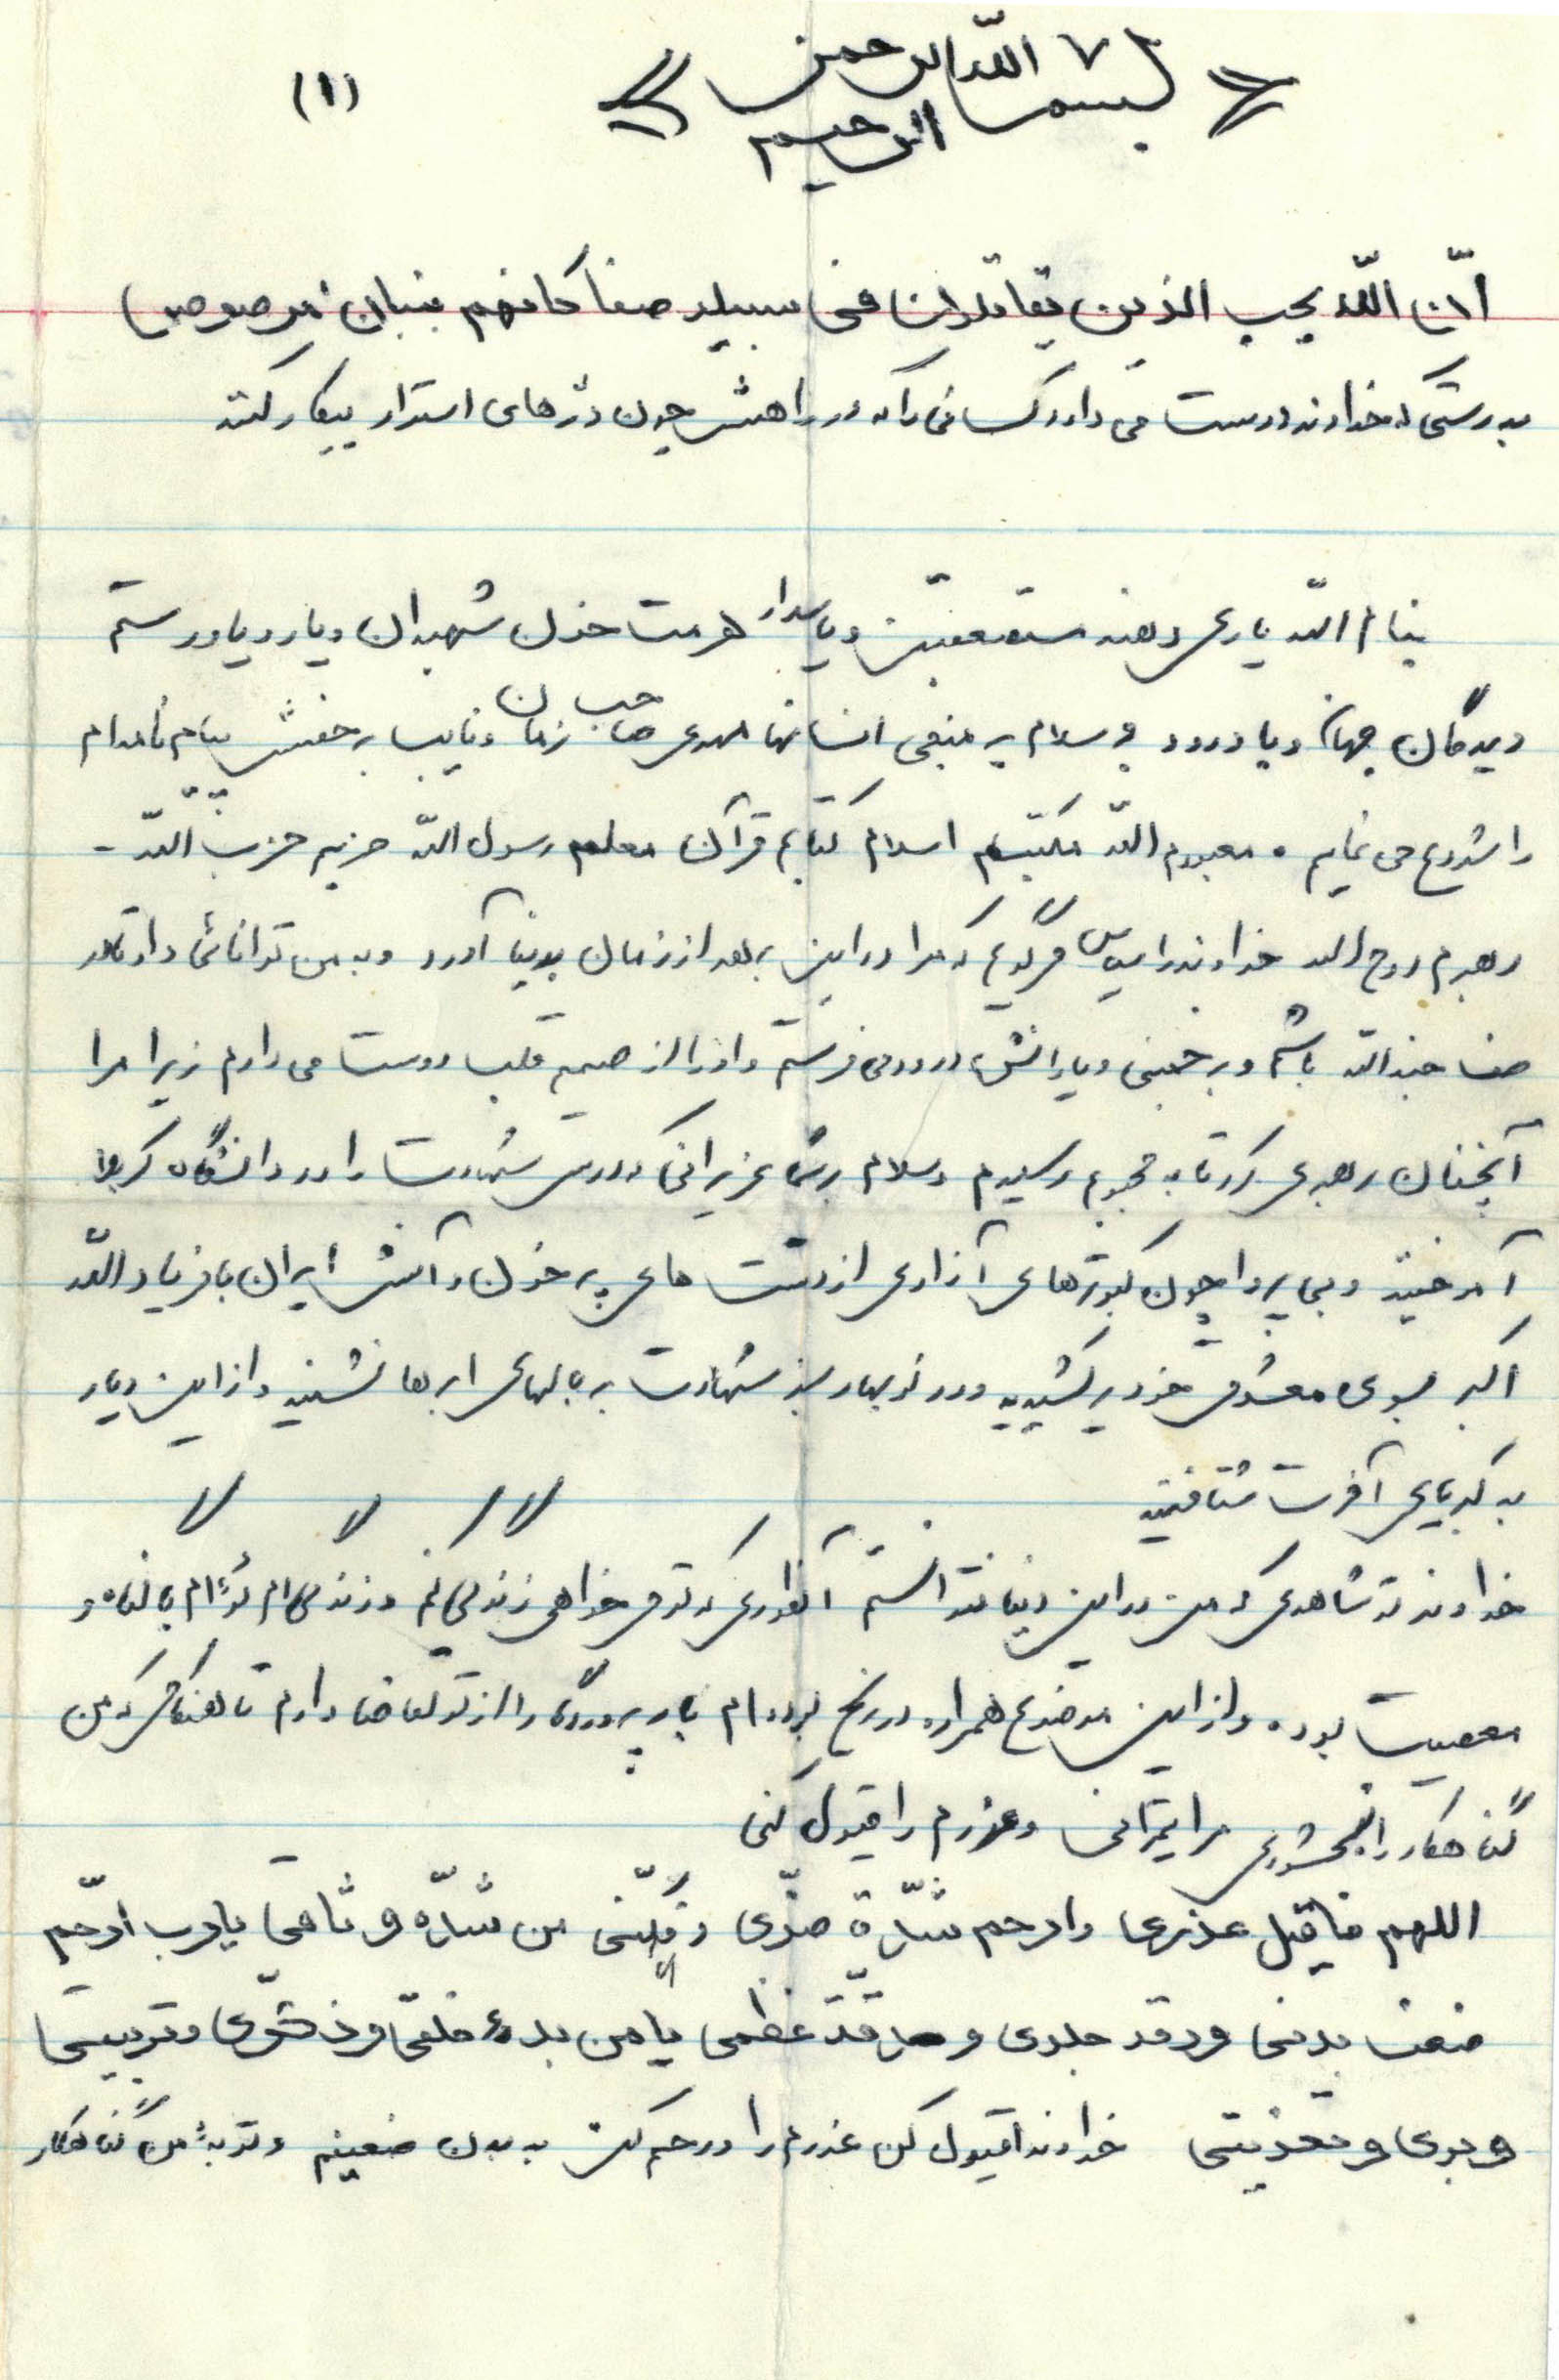 (۱)
بسم الله الرحمن
الرحیم
انّ اللّه یحب الذین یقاتلون فی سبیله صفا کانهم بنیان مرصوص
بدرستی که خداوند دوست می دارد کسانی را که در راهش چون دژهای استوار پیکار کنند
بنام اللّه یاری دهنده مستضعفین و پاسدار حرمت خون شهیدان و یار و یاور ستم
دیدگان جهان و با درود و سلام بر منجی انسانها مهدی صاحب زمان و نایب بر حقش پیام نامه ام
را شروع می نمایم . معبودم اللّه مکتبم اسلام کتابم قرآن معلمم رسول اللّه حزبم حزب اللّه -
رهبرم روح الله خداوند را سپاس می گویم که مرا در این برهه از زمان بدنیا آورد و به من توانائی داد تا در
صف جند اللّه باشم و بر خمینی و یارانش درود می فرستم و او را از صمیم قلب دوست می دارم زیرا مرا
آنچنان رهبری کرد تا به محبوبم رسیدم و سلام بر شما عزیرانی که درس شهادت را در دانشگاه کربلا
آموختید و بی پروا چون کبوترهای آزادی از دشت های پر خون و آتش ایران با فریاد اللّه
اکبر بسوی معشوق خود پر کشیدید و در نوبهار سبز شهادت بر بالهای ابرها نشستید و از این دیار
به کبریای آخرت شتافتید
خداوند تو شاهدی که من در این دنیا نتوانستم آنطوری که تو می خواهی زندگی کنم و زندگی ام توأم با گناه و
معصیت بوده و از این موضوع همواره در رنج بوده ام بار پروردگارا از تو تقاضا دارم تا هنگامی که من
گناهکار را نبخشودی مرا نمیرانی و عذرم را قبول کنی
اللهم فاقبل عذری وارحم شدّة ضرّی و فکّنی من شدّه وثاقی یا رب ارحم
ضعف بدنی و رقة جلدی و دقة عظمی یا من بدء خلقی و ذکری و تربیتی
و بری و تغذیتی خداوندا قبول کن عذرم را و رحم کن به بدن ضعیفم و توبۀ من گناهکار